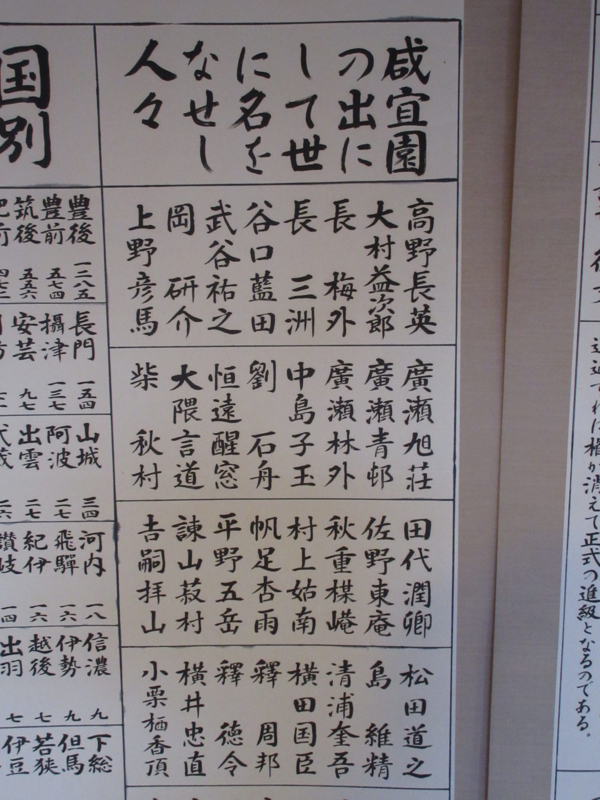 咸宜園
の出に
して世
に名を
なせし
人々
高野長英
大村益次郎
長 梅外
長 三洲
谷口藍田
武谷祐之
岡 研介
上野彦馬
廣瀬旭荘
廣瀬青邨
廣瀬林外
中島子玉
劉 石舟
恒遠醒窓
大隈言道
柴 秋村
田代潤卿
佐野東庵
秋重楳嵓
村上姑南
帆足杏雨
平野五岳
諌山菽村
吉嗣拝山
松田道之
島 維精
清浦奎吾
横田国臣
釋 周邦
釋 徳令
横井忠直
小栗栖香頂
国別
豊後 一三八五
豊前 五七四
筑後 五五六
肥前
長門 一五四
攝津 一三七
安芸 九七
山城 三四
阿波 二七
出雲 二七
河内 一八
飛驒 一六
紀伊 一六
讃岐 一四
信濃 九
伊勢 九
越後 七
出羽 七
下総
但馬
若狭
伊豆
消えて正式の進級となるのである。